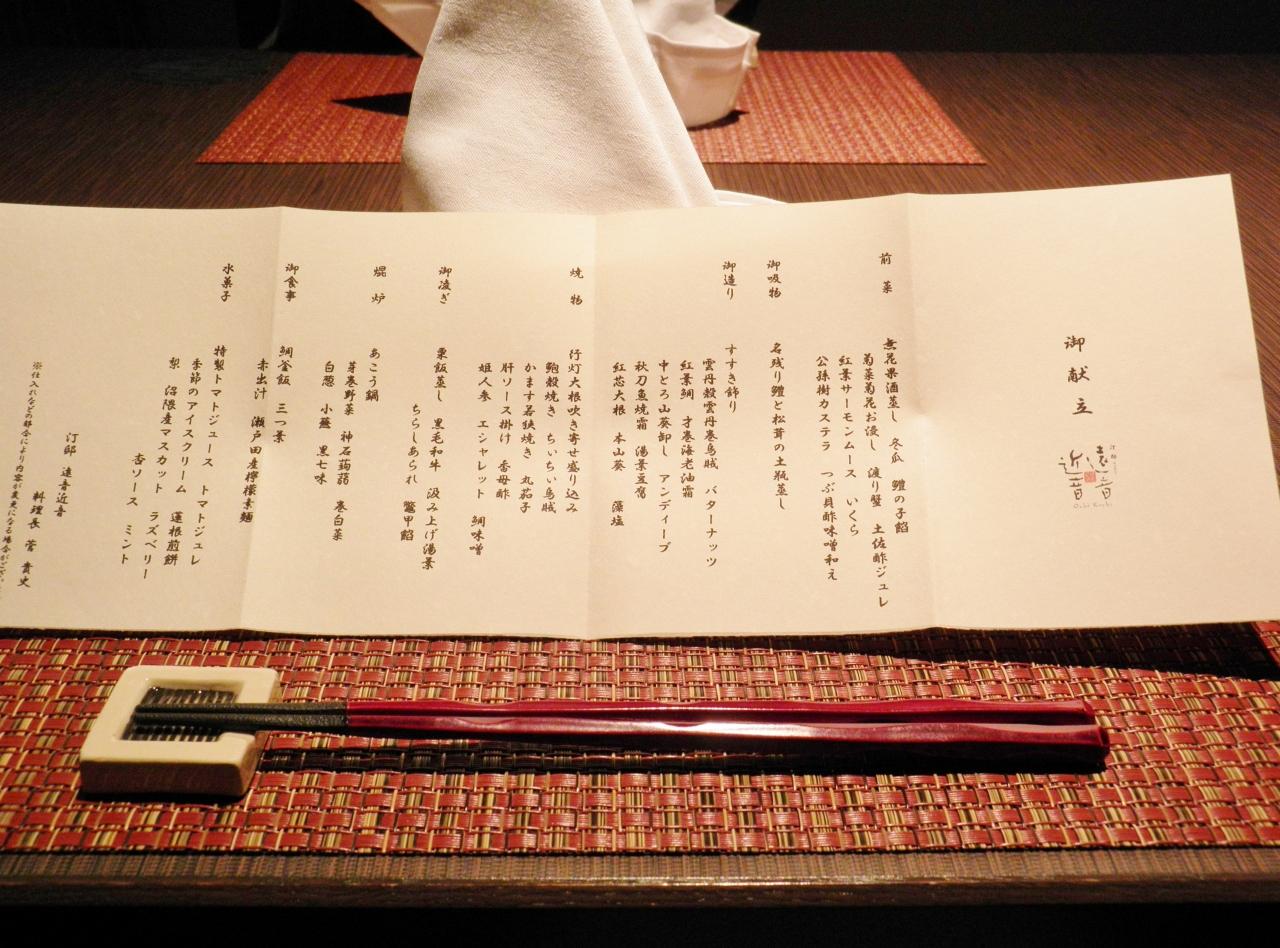 御献立
遠音
近音
前菜
無花果酒蒸し 冬瓜 鱧の子餡
菊菜菊花お浸し 渡り蟹 土佐酢ジュレ
紅葉サーモンムース いくら
公孫樹カステラ つぶ貝酢味噌和え
御吸物
名残り鱧と松茸の土瓶蒸し
御造り
すすき飾り
雲丹殻雲丹巻烏賊 バターナッツ
紅葉鯛 才巻海老油霜
中とろ山葵卸し アンディーブ
秋刀魚焼霜 湯葉豆腐
紅芯大根 本山葵 藻塩
焼物
行灯大根吹き寄せ盛り込み
鮑殻焼き ちぃちぃ烏賊
かます若狭焼き 丸茄子
肝ソース掛け 香母酢
姫人参 エシャレット 鯛味噌
御凌ぎ
栗飯蒸し 黒毛和牛 汲み上げ湯葉
ちらしあられ 鼈甲餡
焜炉
あこう鍋
芽巻野菜 神石蒟蒻 巻白菜
白葱 小蕪 黒七味
御食事
鯛釜飯 三つ葉
赤出汁 瀬戸田産檸檬素麺
水菓子
特製トマトジュース トマトジュレ
季節のアイスクリーム 蓮根煎餅
梨 沼隈産マスカット ラズベリー
杏ソース ミント
汀邸 遠音近音
料理長 菅 貴史
※仕入れなどの都合により内容が変更になる場合がござ